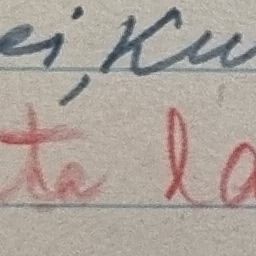 ei, Ku
ta la